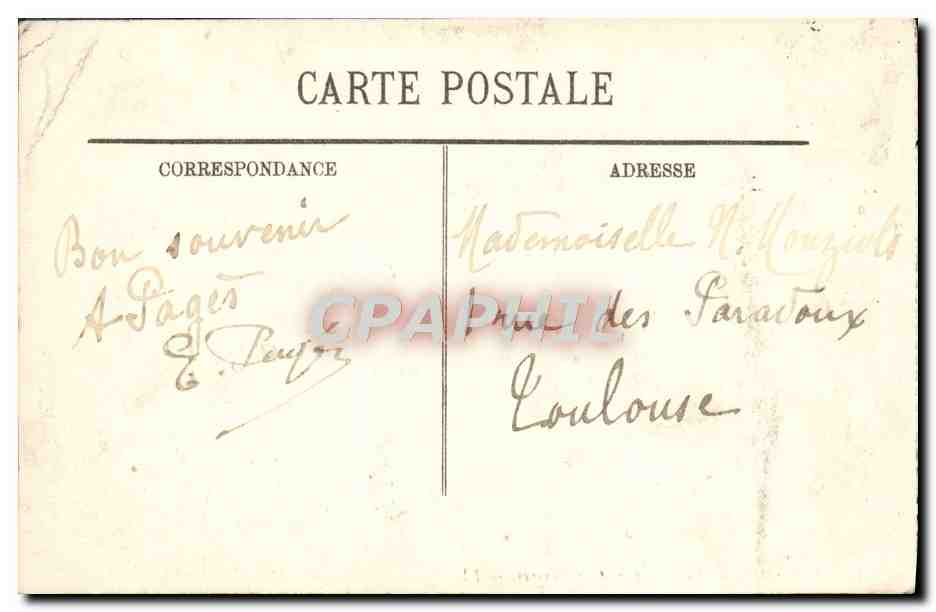 CARTE POSTALE
CORRESPONDANCE
Bon souvenir
A Pagès
E.
ADRESSE
Mademoiselle
rue des Paradoux
Toulouse
CPAPHIL